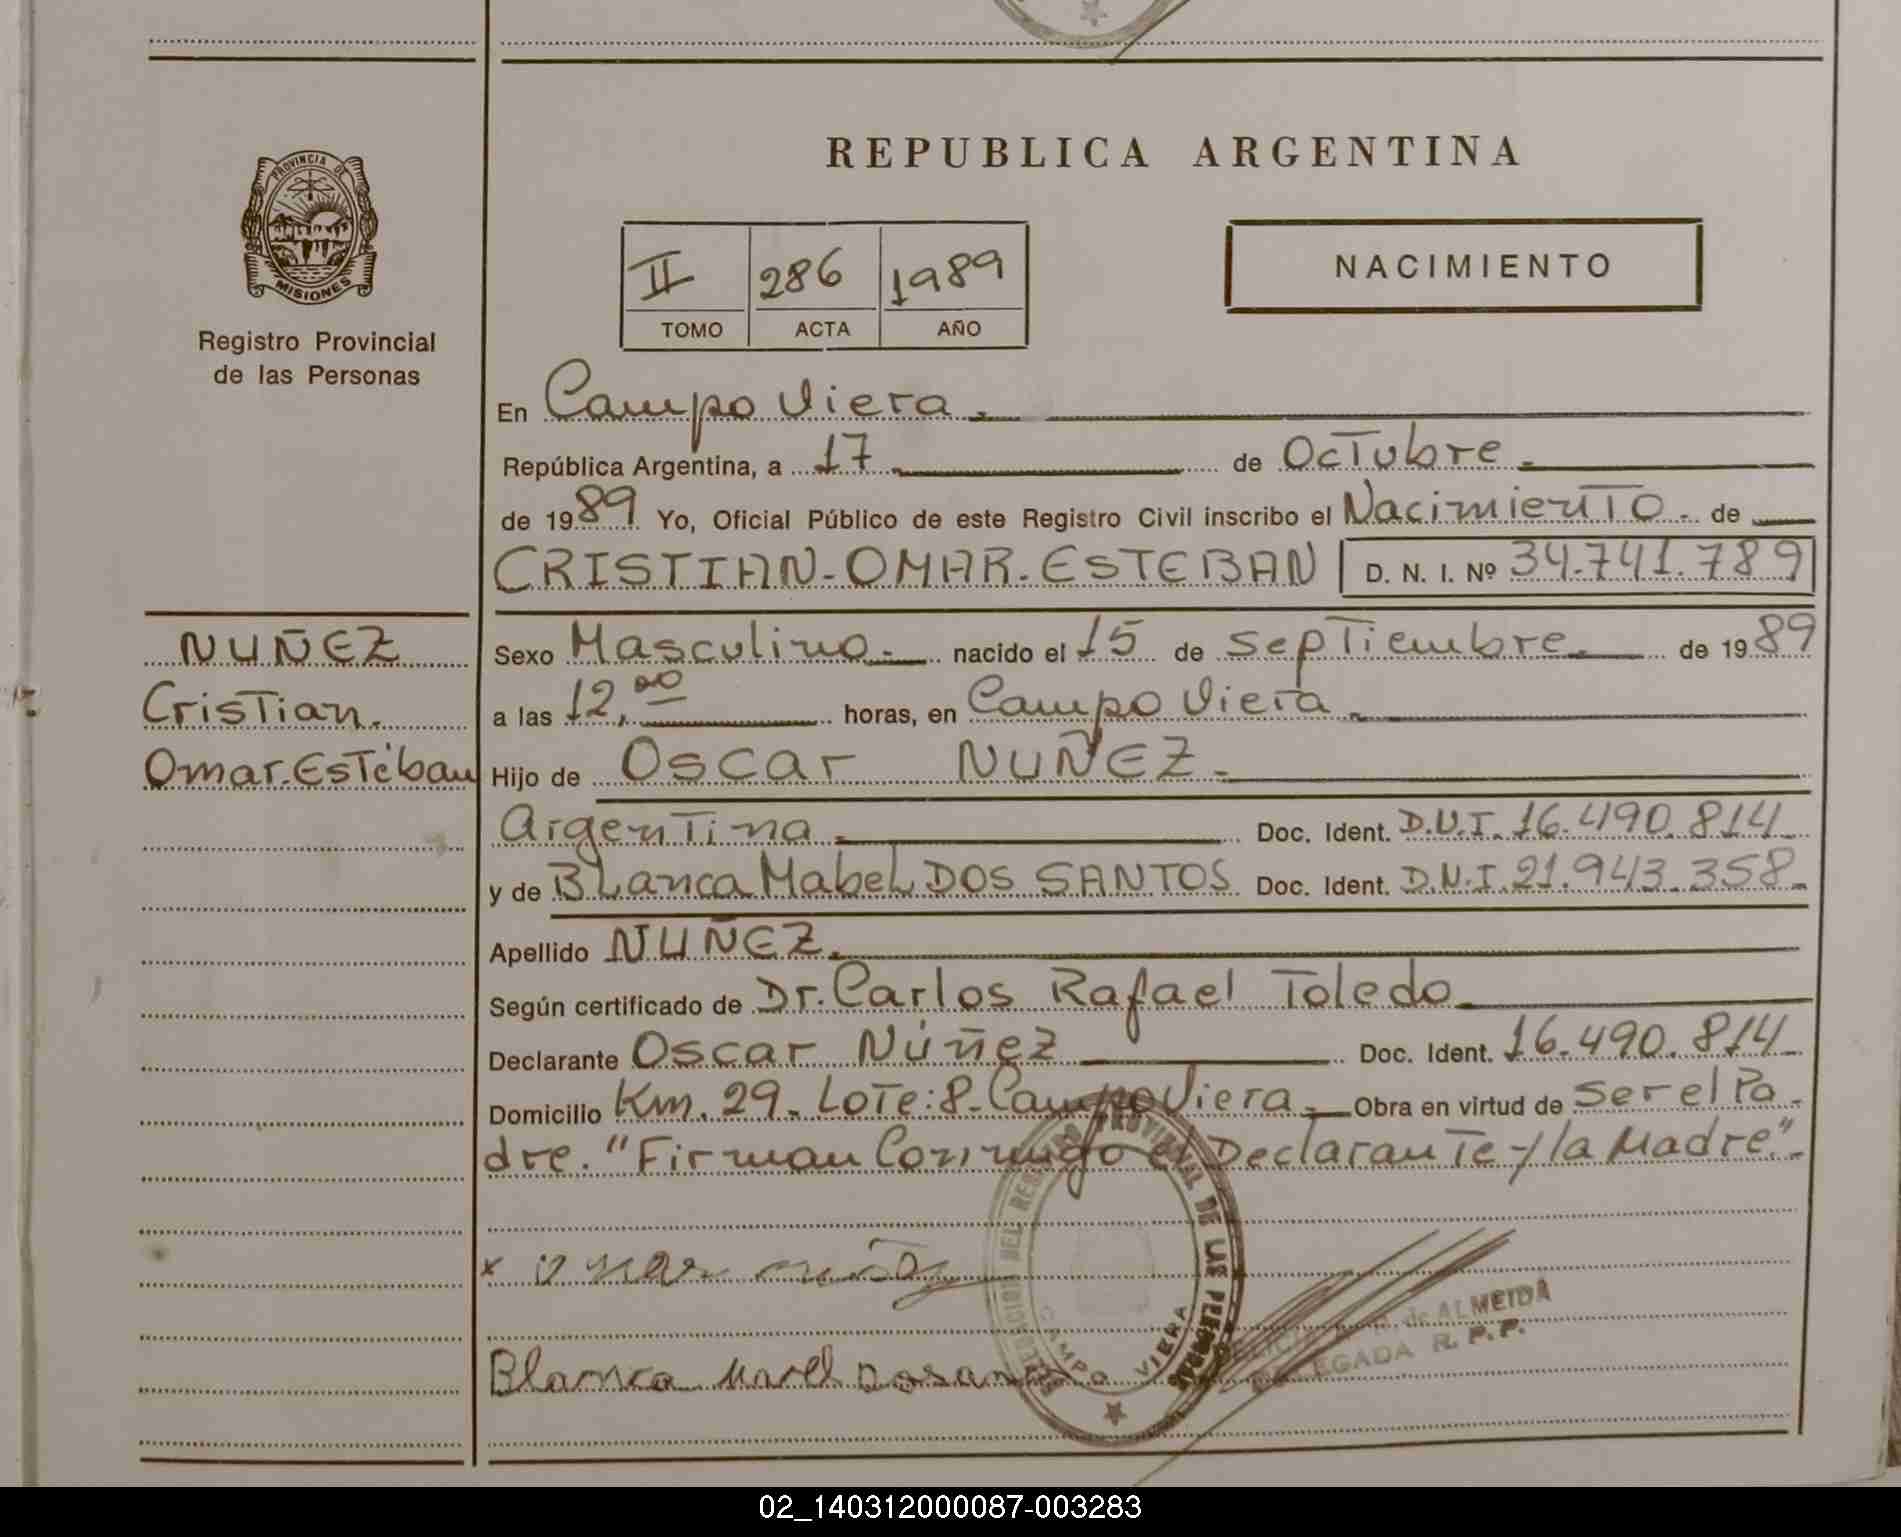 PROVINCIA DE
MISIONES
Registro Provincial
de las Personas
REPUBLICA ARGENTINA
II 286 1989
TOMO ACTA AÑO
NACIMIENTO
En Campo Viera.
República Argentina, a 17 de Octubre
de 1989 Yo, Oficial Público de este Registro Civil inscribo el Nacimiento. de
CRISTIAN-OMAR-ESTEBAN D. N. I. Nº 34.741.789
NUÑEZ
Cristian.
Omar-Estéban
Sexo Masculino. nacido el 15 de septiembre. de 1989
a las 12,00 horas, en Campo Viera
Hijo de Oscar NUÑEZ.
Argentina Doc. Ident. D.N.I. 16.490.814
y de Blanca Mabel DOS SANTOS Doc. Ident. D.N.I. 21.943.358
Apellido NUÑEZ.
Según certificado de Dr. Carlos Rafael Toledo
Declarante Oscar Núñez Doc. Ident. 16.490.814
Domicilio Km. 29. Lote: 8. Campo Viera. Obra en virtud de ser el Pa-
dre. "Firman Conmigo el Declarante y la Madre".
DEL REGISTRO PROVINCIAL DE LAS PERSONAS
CAMPO VIERA
de ALMEIDA
DELEGADA R. P. P.
Blanca
02_140312000087-003283